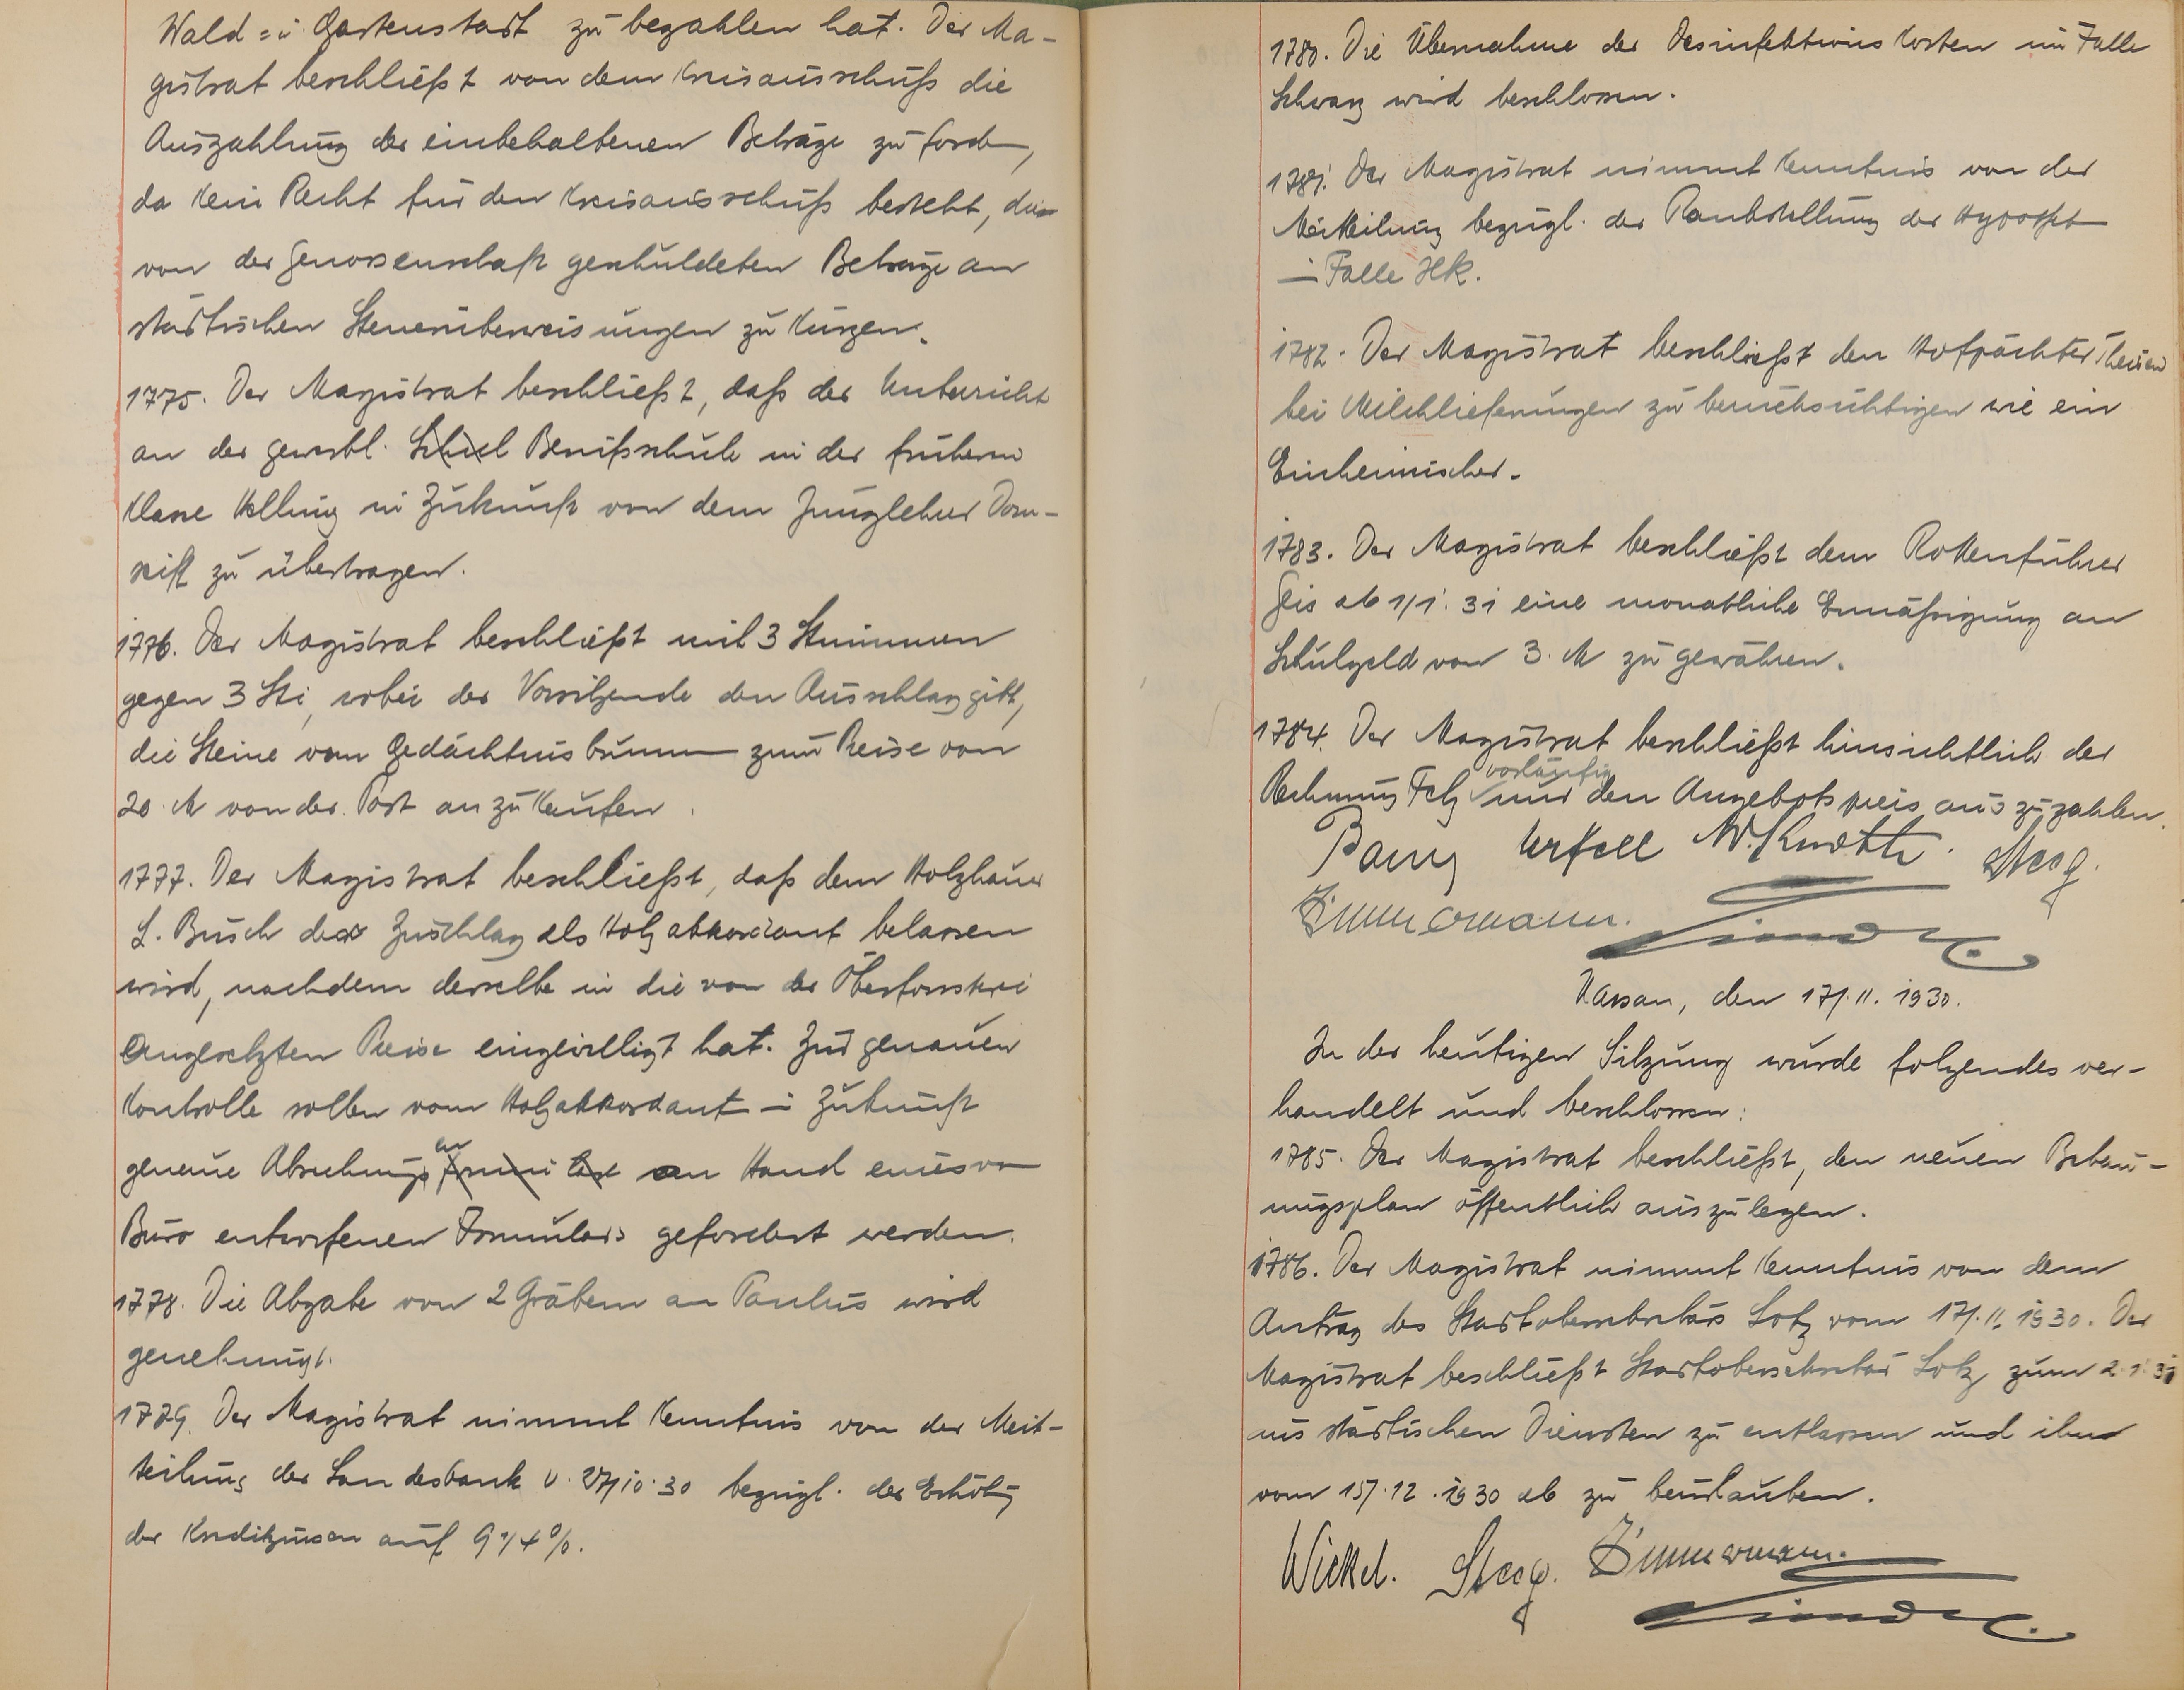 Wald = u. Gartenstadt zu bezahlen hat. Der Ma-
gistrat beschließt von dem Kreisausschuß die
Auszahlung der einbehaltenen Beträge zu fordern,
da kein Recht für den Kreisausschuß besteht, die
von der Genossenschaft geschuldeten Beträge an
städtischen Steuerüberweisungen zu kürzen.
1775. Der Magistrat beschließt, daß der Unterricht
an der gewerbl. Schul Berufsschule in der früheren
Klasse in Zukunft von dem Junglehrer Dom-
zu übertragen.
1776. Der Magistrat beschließt mit 3 Stimmen
gegen 3 Sti, wobei der Vorsitzende den Ausschlag gibt,
die Steine vom Gedächtnisbrunnen zum Preise von
20. M von der Post anzukaufen.
1777. Der Magistrat beschließt, daß dem Holzhauer
L. Busch der Zuschlag als Holzakkordant belassen
wird, nachdem derselbe in die von der Oberförsterei
angesetzten Preise eingewilligt hat. Zur genauen
Kontrolle sollen vom Holzakkordant in Zukunft
genaue Abrechnungen an Hand eines vom
Büro entworfenen Formulars gefordert werden.
1778. Die Abgabe von 2 Gräbern an Paulus wird
genehmigt.
1779. Der Magistrat nimmt Kenntnis von der Mit-
teilung der Landesbank v. 27/10.30 bezügl. der Erhöhung
der Kreditzinsen auf 9 1/4 %.
1780. Die Übernahme der Desinfektionskosten im Falle
Schwarz wird beschlossen.
1781. Der Magistrat nimmt Kenntnis von der
Mitteilung bezügl. der Rangstellung der Hypothek
im Falle
1782. Der Magistrat beschließt den Hofpächter Theisen
bei Milchlieferungen zu berücksichtigen wie ein
Einheimischer.
1783. Der Magistrat beschließt dem Rottenführer
Geis ab 1/1.31 eine monatliche Ermäßigung an
Schulgeld von 3. M zu gewähren.
1784. Der Magistrat beschließt hinsichtlich der
Rechnung vorläufig nur den Angebotspreis auszuzahlen.
W. Knoth. Steeg.
Zimmermann.
Nassau, den 17/.11.1930.
In der heutigen Sitzung wurde folgendes ver-
handelt und beschlossen:
1785. Der Magistrat beschließt, den neuen Bebau-
ungsplan öffentlich auszulegen.
1786. Der Magistrat nimmt Kenntnis von dem
Antrag des Stadtobersekretärs Lotz vom 17/.11.1930. Der
Magistrat beschließt Stadtobersekretär Lotz zum 2.1.31
aus städtischen Diensten zu entlassen und ihn
vom 15/.12.1930 ab zu beurlauben.
Wickel. Steeg. Zimmermann.